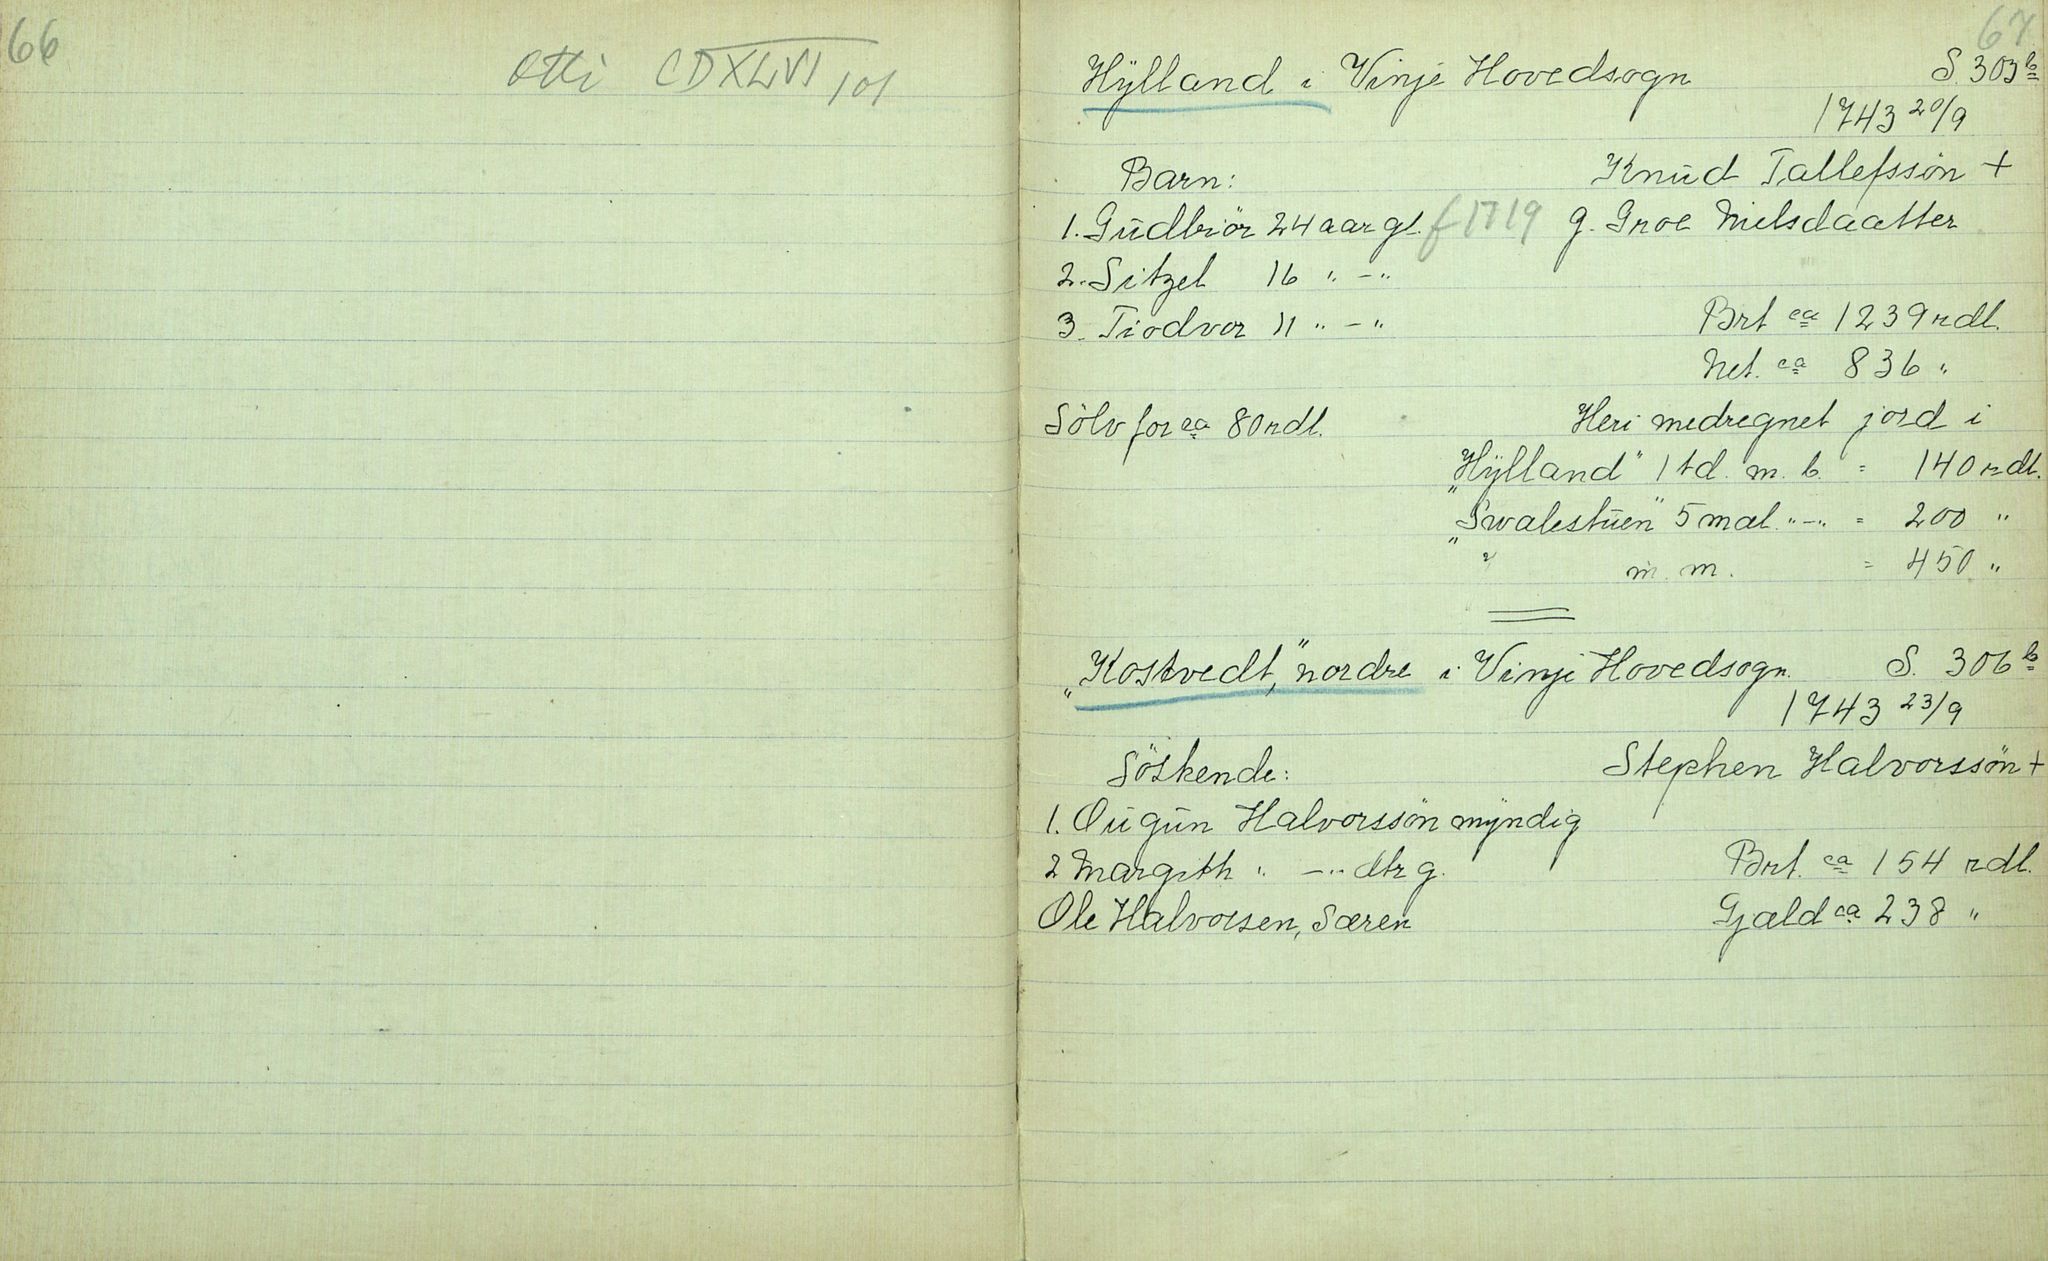 66
Otti CDXLVI 101
67
Hÿlland i Vinje Hovedsogn S. 303 b
1743 20/9
Barn: Knud Tallefssön +
1. Gudbiör 24 aar gl. f 1719 g. Groe Nielsdaatter
2. Sitzel 16 " - "
3. Tiodvor 11 " - " Brt ca 1239 rdl.
Net. ca 836 "
Sölv for ca 80 rdl. Heri medregnet jord i
"Hÿlland" 1 td. m. b. = 140 rdl.
"Swalestuen" 5 mæl. " - " = 200 "
" m. m. = 450 "
"Kostvedt," nordre i Vinje Hovedsogn. S. 306 b
1743 23/9
Söskende: Stephen Halvorssön +
1. Ougun Halvorssön mÿndig
2 Margith " - " dtr g. Brt. ca 154 rdl.
Ole Halvorsen, Særen Gjæld ca 238 "